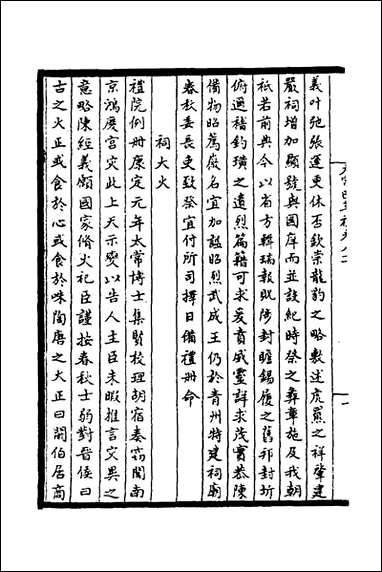 義叶弛張運更休否欽崇龍豹之略敷述虎羆之祥肇建
嚴祠增加顯號與國庠而並設紀時祭之彝章施及我朝
祇若前典今以省方輯瑞報既陟封瞻錫履之舊祁封圻
俯迴稽釣璜之遺烈篇籍可求爰賁威靈詳求茂實恭陳
備物昭薦廢名宜加諡昭烈武成王仍於青州特建祠廟
春秋委長吏致祭宜付所司擇日備禮册命
祠大火
禮院例册康定元年太常博士集賢校理胡宿奏竊聞南
京鴻慶宮灾此上天示變以告人主臣未暇推言灾異之
意略陳經義願國家脩火祀臣謹按春秋士弱對晉侯曰
古之火正或食於心或食於咮陶唐之火正曰閼伯居商